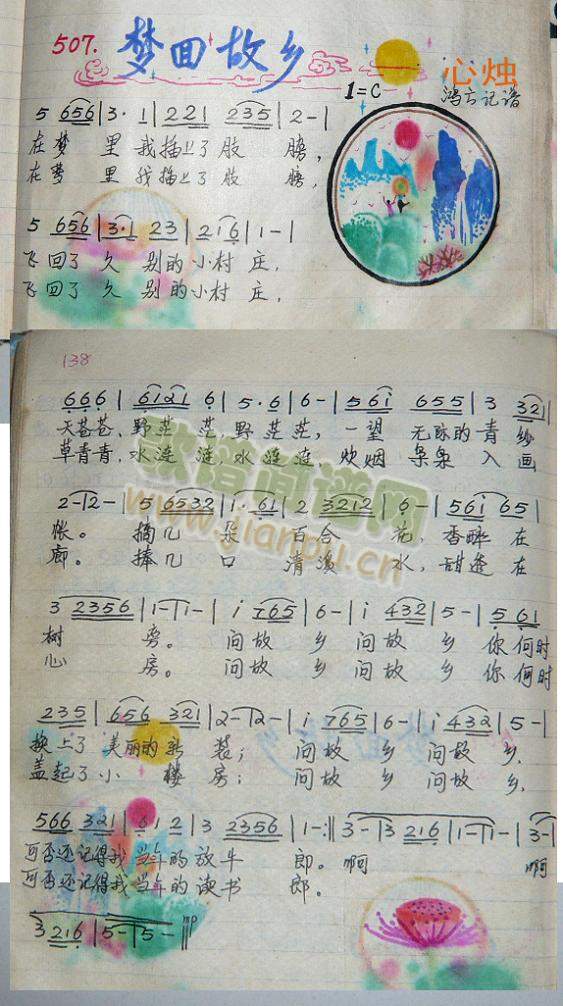 507. 梦回故乡 心烛
1=C 鸿云记谱
5 656 | 3· 1 | 2 2 1 2 3 5 | 2 - |
在梦 里 我插上了 肢 膀,
在梦 里 我插上了 肢 膀,
5 656 | 3·1 2 3 | 2 1 6 | 1 - |
飞回了 久 别的小村 庄,
飞回了 久 别的小村 庄,
138
6 6 6 | 6 1 2 1 6 | 5 · 6 | 6 - | 5 6 i 6 5 5 | 3 3 2 1 |
天苍苍,野茫 茫,野茫 茫, 一望 无际的青 纱
草青青,水涟 涟,水涟 涟, 炊烟 袅袅 入 画
2 - | 2 - | 5 6 5 3 2 | 1 · 6 1 | 2 3 2 1 2 | 6 - | 5 6 i 6 5 |
帐。 摘几 朵 百合 花, 香醉 在
廊。 捧几 口 清溪 水, 甜透 在
3 2 3 5 6 | 1 - | 1 - | i 7 6 5 | 6 - | i 4 3 2 | 5 - | 5 6 1
树 旁。 问故 乡 问故 乡 你 何时
心 房。 问故 乡 问故 乡 你 何时
2 3 5 | 6 5 6 3 2 1 | 2 - | 2 - | i 7 6 5 | 6 - | i 4 3 2 | 5 - |
换上了 美丽的新 装; 问故 乡 问故 乡,
盖起了小 楼 房; 问故 乡 问故 乡,
5 6 6 3 2 1 | 6 1 2 | 3 2 3 5 6 | 1 - :|| 3 - | 3 2 1 6 | 1 - | 1 - | 3 - |
可否还记得我 当年的 放牛 郎。 啊 啊
可否还记得我 当年的 读书 郎。
3 2 1 6 | 5 - | 5 - ||| mp
歌谱简谱网
www.jianpu.cn